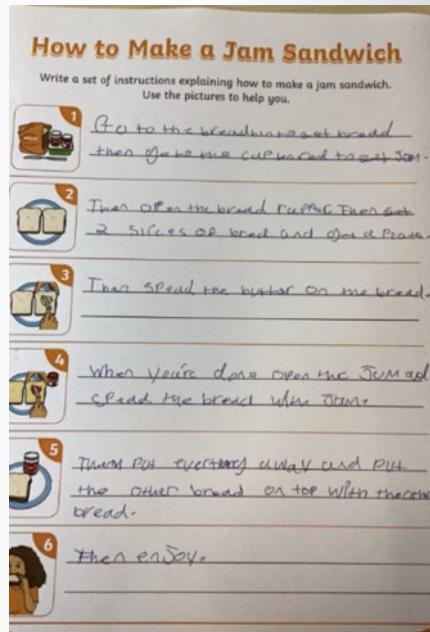 How to Make a Jam Sandwich
Write a set of instructions explaining how to make a jam sandwich.
Use the pictures to help you.
1
Go to the breadbin to get bredd
then go to the cupbored to get Jam.
2
Then open the bread Then get
2 slices of bred and get a Plate.
3
Then spead the butter on the bread.
4
When you're done open the Jum ad
spedd the bread with Jam.
5
Then put everthing away and put
the other bread on top with the othe
bread.
6
then enjoy.